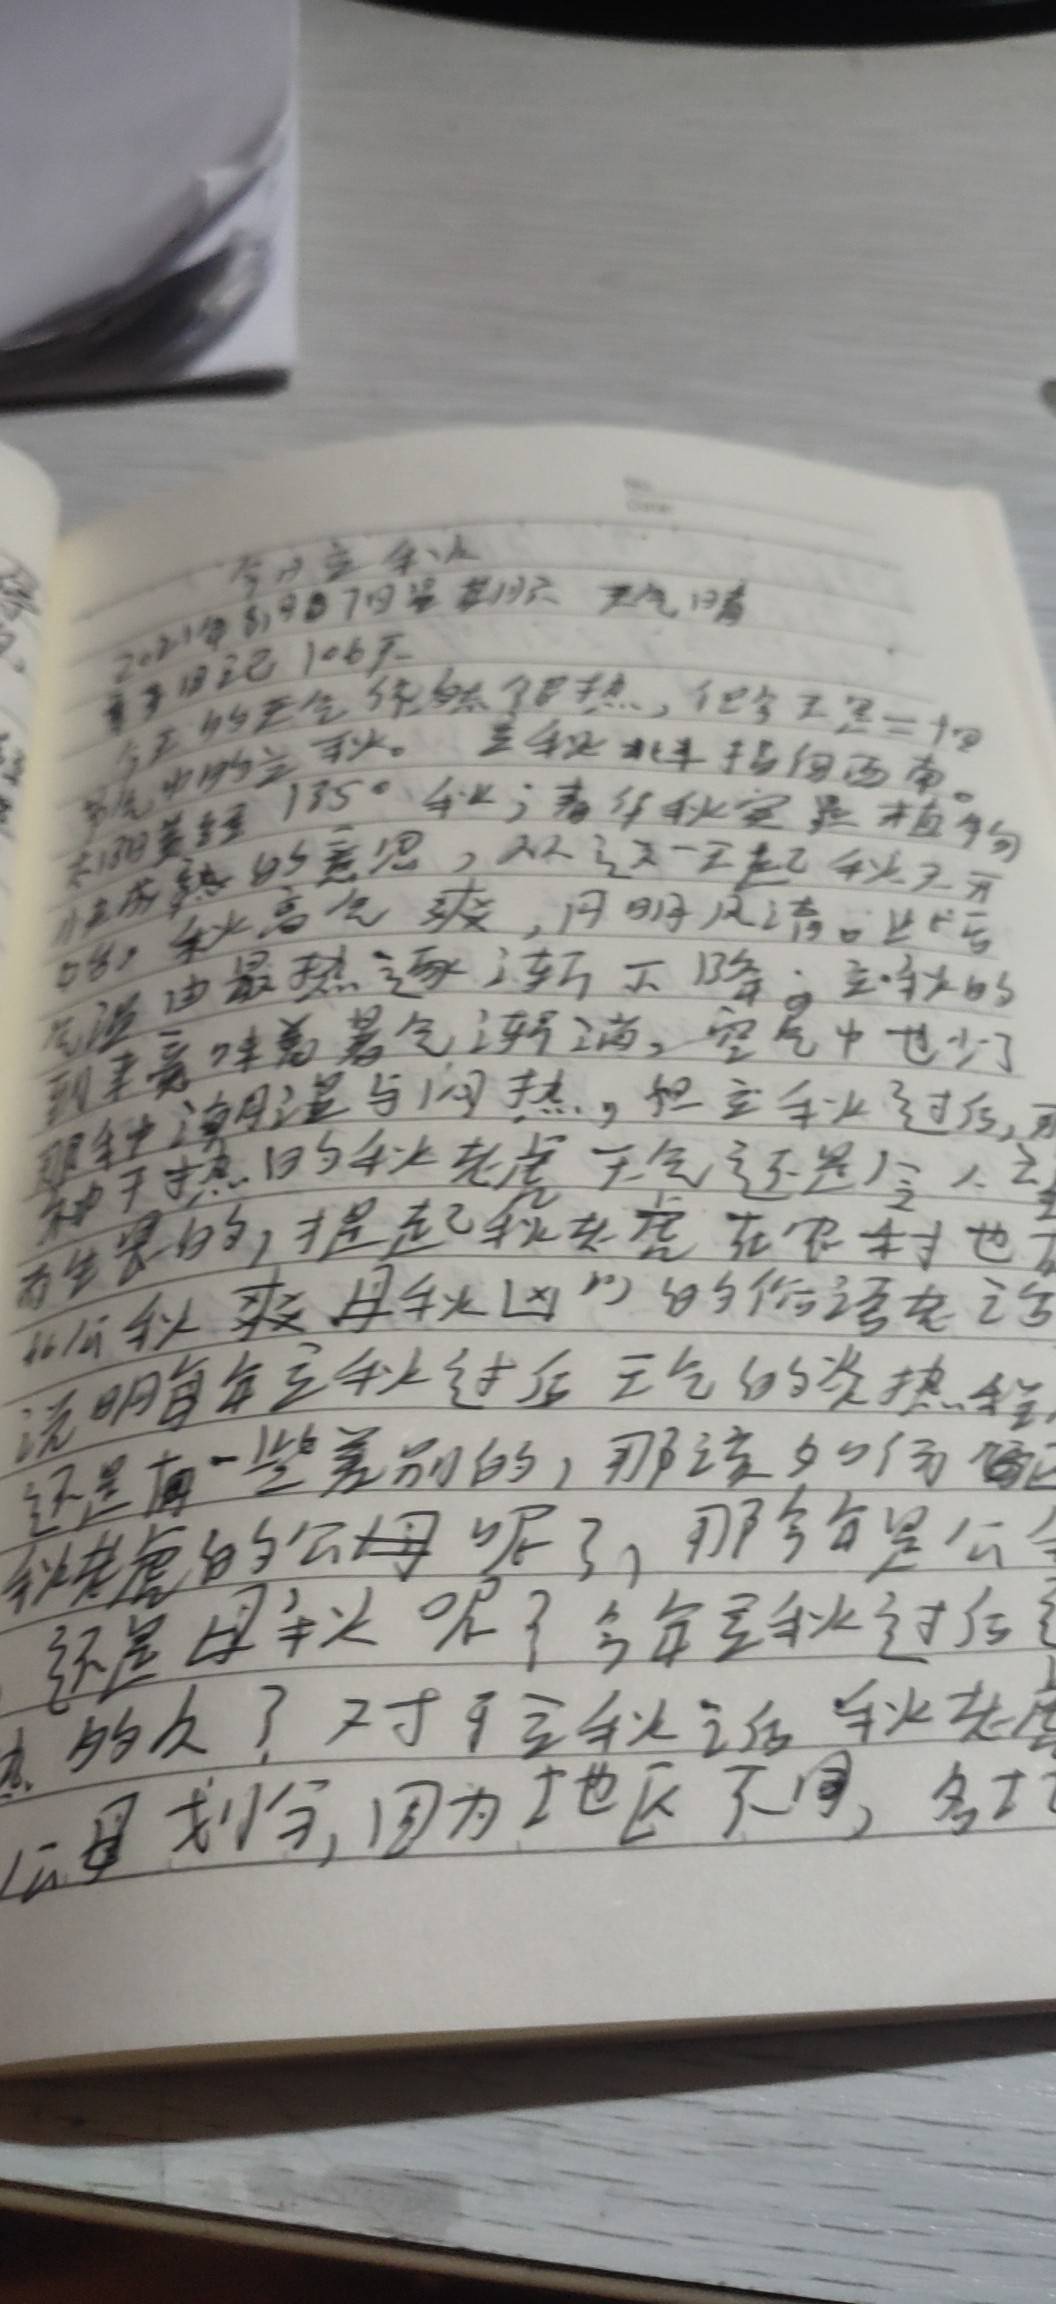 No.
Date
今日立秋
2021年8月7日星期六 天气晴
日记106天
今天的天气依然很热,但今天是二十四
节气中的立秋。立秋北斗指向西南。
太阳黄经135°秋;春华秋实是植物
成熟的意思,从这天一天起秋天开
始,秋高气爽,月明风清。此后
气温由最热逐渐下降。立秋的
到来意味着暑气渐消,空气中也少了
那种潮湿与闷热,但立秋过后,
种干热的秋老虎天气还是令人
而生畏的,提起秋老虎在农村也
"公秋爽母秋凶"的俗语老话
说明每年立秋过后天气的炎热程
还是有一些差别的,那该如何
秋老虎的公母呢?,那今年是公
还是母秋呢?今年立秋过后
的久?对于立秋之后秋老虎
公母划分,因为地区不同,各地